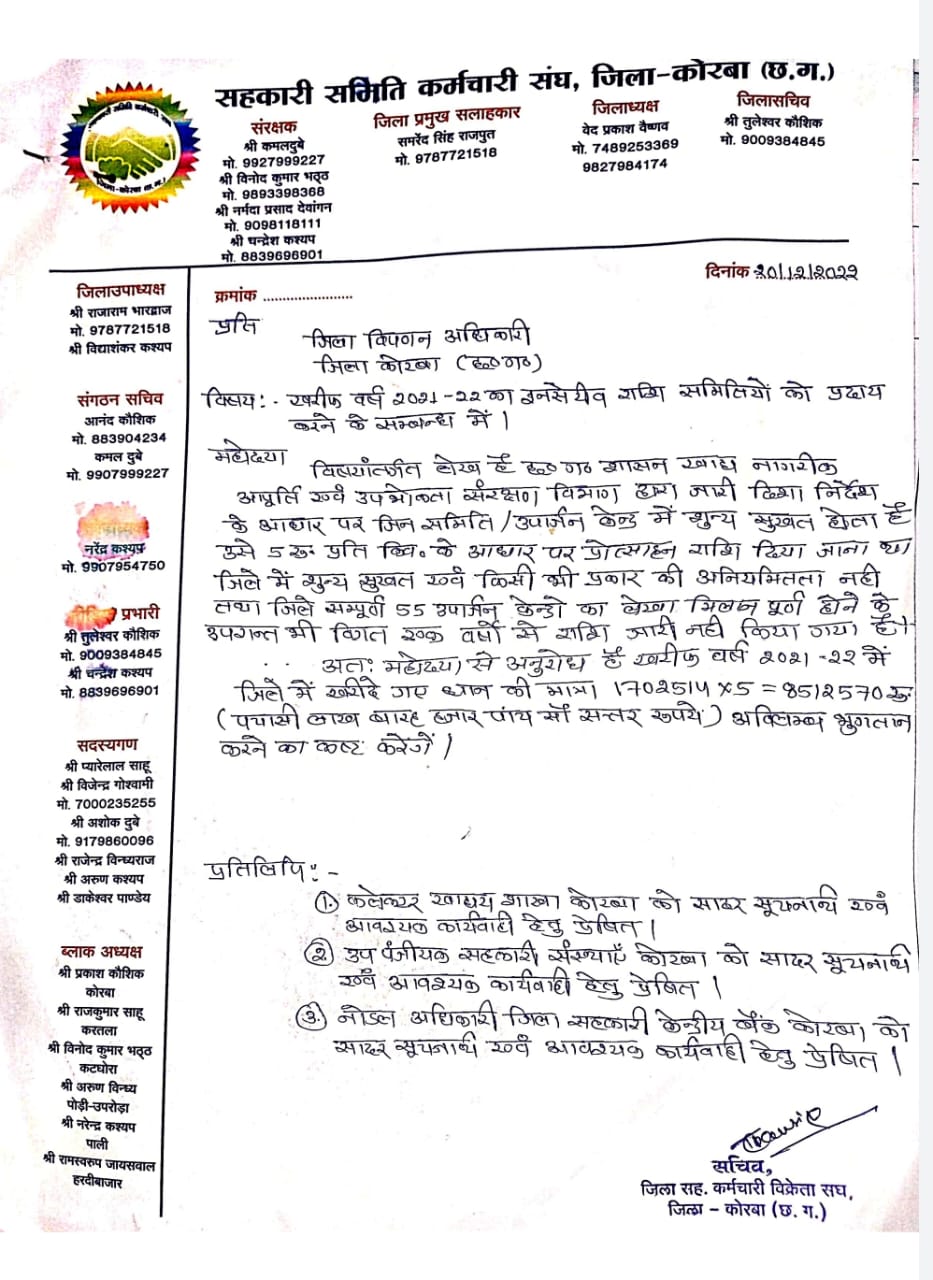 सहकारी समिति कर्मचारी संघ, जिला-कोरबा (छ.ग.)
संरक्षक
श्री कमलदुबे
मो. 9927999227
श्री विनोद कुमार भठ्ठ
मो. 9893398368
श्री नर्मदा प्रसाद देवांगन
मो. 9098118111
श्री चन्द्रेश कश्यप
मो. 8839696901
जिला प्रमुख सलाहकार
समरेंद सिंह राजपुत
मो. 9787721518
जिलाध्यक्ष
वेद प्रकाश वैष्णव
मो. 7489253369
9827984174
जिलासचिव
श्री तुलेश्वर कौशिक
मो. 9009384845
जिलाउपाध्यक्ष
श्री राजाराम भारद्वाज
मो. 9787721518
श्री विद्याशंकर कश्यप
संगठन सचिव
आनंद कौशिक
मो. 883904234
कमल दुबे
मो. 9907999227
नरेंद्र कश्यप
मो. 9907954750
प्रभारी
श्री तुलेश्वर कौशिक
मो. 9009384845
श्री चन्द्रेश कश्यप
मो. 8839696901
सदस्यगण
श्री प्यारेलाल साहू
श्री विजेन्द्र गोश्वामी
मो. 7000235255
श्री अशोक दुबे
मो. 9179860096
श्री राजेन्द्र विन्ध्यराज
श्री अरुण कश्यप
श्री डाकेश्वर पाण्डेय
ब्लाक अध्यक्ष
श्री प्रकाश कौशिक
कोरबा
श्री राजकुमार साहू
करतला
श्री विनोद कुमार भठ्ठ
कटघोरा
श्री अरुण विन्ध्य
पोड़ी-उपरोड़ा
श्री नरेन्द्र कश्यप
पाली
श्री रामस्वरुप जायसवाल
हरदीबाजार
दिनांक 20/12/2022
क्रमांक ........................
प्रति
जिला विपणन अधिकारी
जिला कोरबा (छ०ग०)
विषय:- खरीफ वर्ष 2021-22 का इनसेंटीव राशि समितियों को प्रदाय
करने के सम्बन्ध में।
महोदया
विषयांतर्गत लेख है छ०ग० शासन खाद्य नागरीक
आपूर्ति एवं उपभोक्ता संरक्षण विभाग द्वारा जारी दिशा निर्देश
के आधार पर जिन समिति/उपार्जन केन्द्र में शुन्य सुखत होता है
उसे 5 रू. प्रति क्वि. के आधार पर प्रोत्साहन राशि दिया जाना था
जिले में शुन्य सुखत एवं किसी भी प्रकार की अनियमितता नही
तथा जिले सम्पूर्ण 55 उपार्जन केन्द्रो का लेखा मिलान पूर्ण होने के
उपरान्त भी विगत एक वर्षो से राशि जारी नही किया गया है।
अतः महोदया से अनुरोध है खरीफ वर्ष 2021-22 में
जिले में खरीदे गए धान की मात्रा 1702514 x 5 = 8512570 रू
(पचासी लाख बारह हजार पांच सौ सत्तर रूपये) अविलम्ब भुगतान
करने का कष्ट करेंगें।
प्रतिलिपि:-
① कलेक्टर खाद्यय शाखा कोरबा को सादर सूचनार्थ एवं
आवश्यक कार्यवाही हेतु प्रेषित।
② उप पंजीयक सहकारी संस्थाएँ कोरबा को सादर सूचनार्थ
एवं आवश्यक कार्यवाही हेतु प्रेषित।
③ नोडल अधिकारी जिला सहकारी केन्द्रीय बैंक कोरबा को
सादर सूचनार्थ एवं आवश्यक कार्यवाही हेतु प्रेषित।
सचिव,
जिला सह. कर्मचारी विक्रेता सघ,
जिला - कोरबा (छ. ग.)